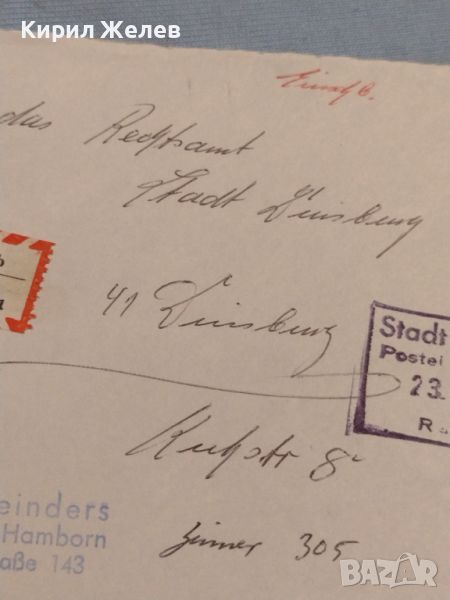 Кирил Желев
Einschb.
das Rechtsamt
Stadt Duisburg
41 Duisburg
Stadt
Postei
23.
R
einders
Hamborn
aße 143
Zimmer 305
bazar